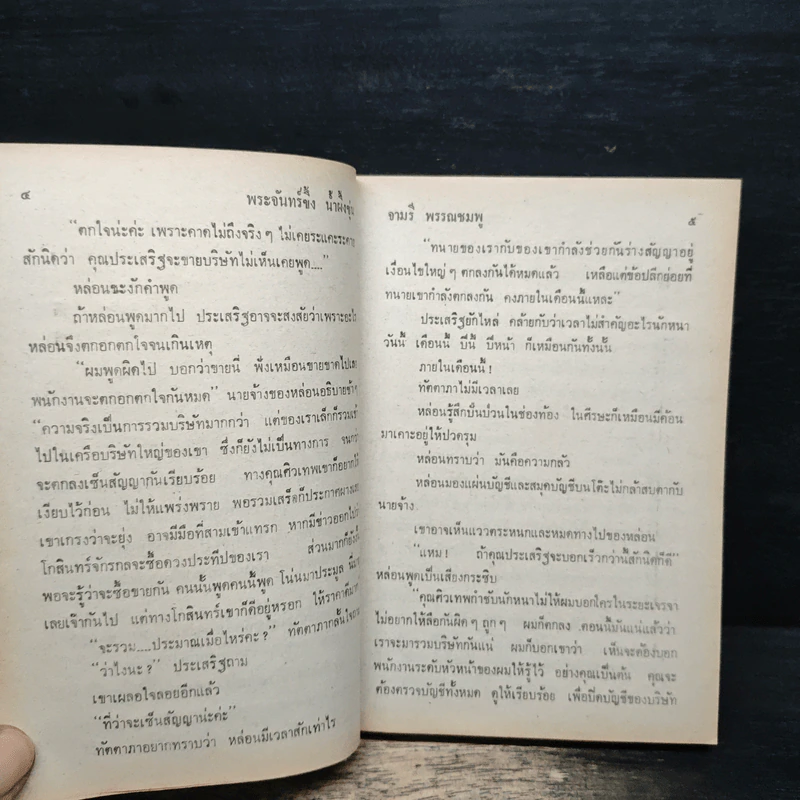 ๔
พระจันทร์ขึ้ง น้ำผึ้งขุ่น
“ตกใจน่ะค่ะ เพราะคาดไม่ถึงจริงๆ ไม่เคยระแคะระคาย
สักนิดว่า คุณประเสริฐจะขายบริษัทไม่เห็นเคยพูด....”
หล่อนชะงักคำพูด
ถ้าหล่อนพูดมากไป ประเสริฐอาจจะสงสัยว่าเพราะอะไร
หล่อนจึงตกอกตกใจจนเกินเหตุ
“ผมพูดผิดไป บอกว่าขายนี่ ฟังเหมือนขายขาดไปเลย
พนักงานจะตกอกตกใจกันหมด” นายจ้างของหล่อนอธิบาย
“ความจริงเป็นการรวมบริษัทมากกว่า แต่ของเราเล็กก็รวมเข้า
ไปในเครือบริษัทใหญ่ของเขา ซึ่งก็ยังไม่เป็นทางการ จนกว่า
จะตกลงเซ็นสัญญากันเรียบร้อย ทางคุณศิวเทพเขาก็อยากให้
เงียบไว้ก่อน ไม่ให้แพร่งพราย พอรวมเสร็จก็ประกาศผางเลย
เขาเกรงว่าจะยุ่ง อาจมีมือที่สามเข้าแทรก หากมีข่าวออกไปว่า
โกสินทร์จักรกลจะซื้อดวงประทีปของเรา ส่วนมากก็ยังงี้
พอจะรู้ว่าจะซื้อขายกัน คนนั้นพูดคนนี้พูด โน่นมาประมูล นี่มา
เลยเจ๊ากันไป แต่ทางโกสินทร์เขาก็ดีอยู่หรอก ให้ราคาดีมาก
“จะรวม....ประมาณเมื่อไหร่คะ?” ทัตตาภากลั้นใจถาม
“ว่าไงนะ?” ประเสริฐถาม
เขาเผลอใจลอยอีกแล้ว
“ที่ว่าจะเซ็นสัญญาน่ะค่ะ”
ทัตตาภาอยากทราบว่า หล่อนมีเวลาสักเท่าไร
จามรี พรรณชมพู
๕
“ทนายของเรากับของเขากำลังช่วยกันร่างสัญญาอยู่
เงื่อนไขใหญ่ๆ ตกลงกันได้หมดแล้ว เหลือแต่ข้อปลีกย่อยที่
ทนายเขากำลังตกลงกัน คงภายในเดือนนี้แหละ”
ประเสริฐยักไหล่ คล้ายกับว่าเวลาไม่สำคัญอะไรนักหนา
วันนี้ เดือนนี้ ปีนี้ ปีหน้า ก็เหมือนกันทั้งนั้น
ภายในเดือนนี้!
ทัตตาภาไม่มีเวลาเลย
หล่อนรู้สึกปั่นป่วนในช่องท้อง ในศีรษะก็เหมือนมีค้อน
มาเคาะอยู่ให้ปวดครุม
หล่อนทราบว่า มันคือความกลัว
หล่อนมองแผ่นบัญชีและสมุดบัญชีบนโต๊ะไม่กล้าสบตากับ
นายจ้าง
เขาอาจเห็นแววตระหนกและหมดทางไปของหล่อน
“แหม! ถ้าคุณประเสริฐจะบอกเร็วกว่านี้สักนิดก็ดี”
หล่อนพูดเป็นเสียงกระซิบ
“คุณศิวเทพกำชับนักหนาไม่ให้ผมบอกใครในระยะเจรจา
ไม่อยากให้ลือกันผิดๆ ถูกๆ ผมก็ตกลง ตอนนี้มันแน่แล้วว่า
เราจะมารวมบริษัทกันแน่ ผมก็บอกเขาว่า เห็นจะต้องบอก
พนักงานระดับหัวหน้าของผมให้รู้ไว้ อย่างคุณเป็นต้น คุณจะ
ต้องตรวจบัญชีทั้งหมด ดูให้เรียบร้อย เพื่อปิดบัญชีของบริษัท